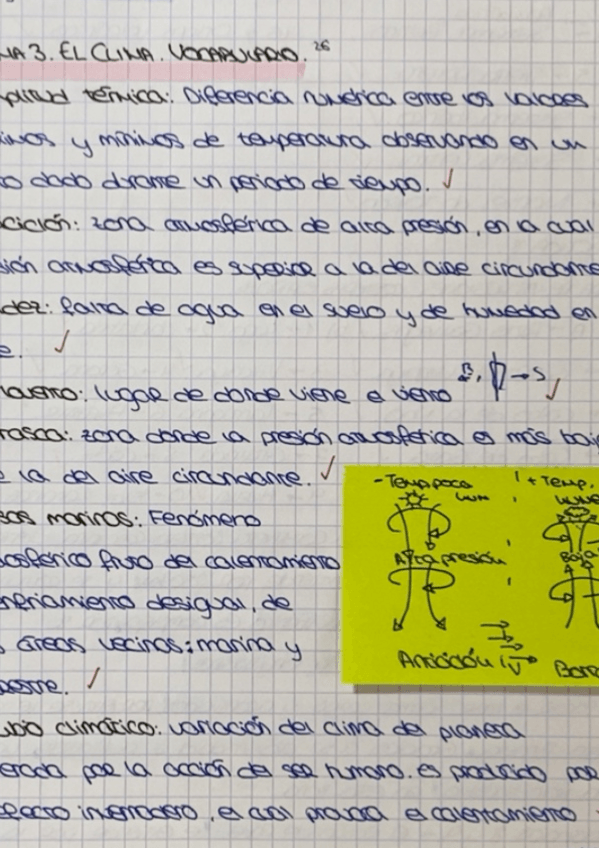 MA 3. EL CLIMA. VOCABULARIO. 26
plitud térmica: Diferencia numérica entre los valores
imos y mínimos de temperatura observando en un
o dado durante un periodo de tiempo.
ciclón: zona atmosférica de alta presión, en la cual
sión atmosférica es superior a la del aire circundante
dez: falta de agua en el suelo y de humedad en
e.
lovento: lugar de donde viene el viento
B. → S
rasca: zona donde la presión atmosférica es más baj
e la del aire circundante.
sas marinas: Fenómeno
osférico fruto del calentamiento
nfriamiento desigual, de
s áreas vecinas: marina y
restre.
mbio climático: variación del clima del planeta
erada por la acción del ser humano. es producido por
efecto invernadero, el cual provoca el calentamiento
- Temp. poca
+ Temp.
Alta presión
Baja
Anticiclón
Borr